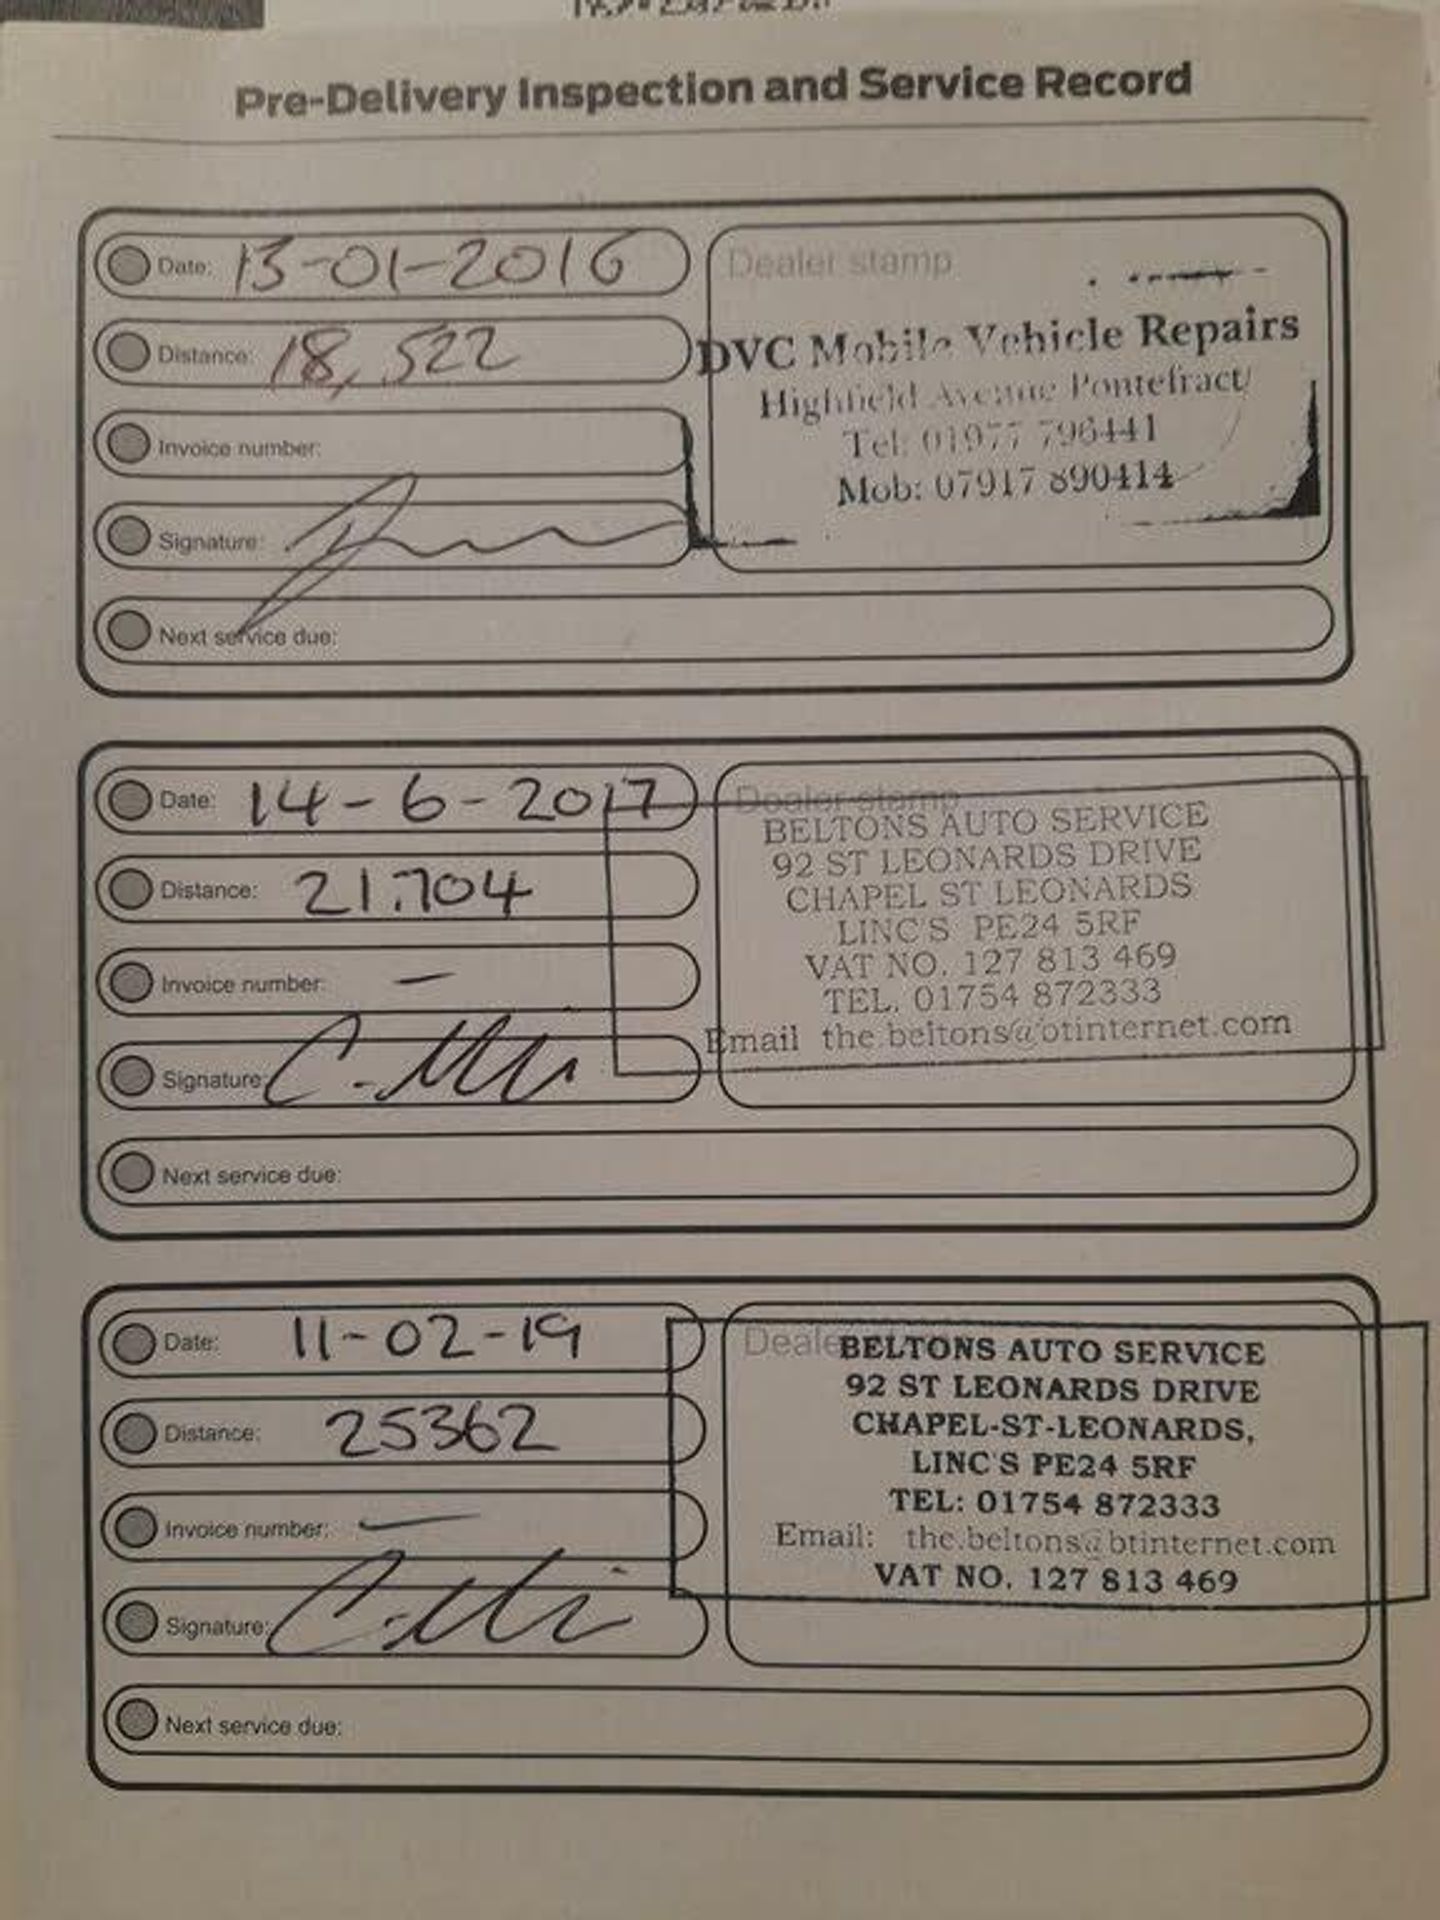 Pre-Delivery Inspection and Service Record
Date: 13-01-2016
Distance: 18,522
Invoice number:
Signature:
Next service due:
Dealer stamp
DVC Mobile Vehicle Repairs
Highfield Avenue Pontefract
Tel: 01977 796441
Mob: 07917 890414
Date: 14-6-2017
Distance: 21.704
Invoice number: -
Signature:
Next service due:
Dealer stamp
BELTONS AUTO SERVICE
92 ST LEONARDS DRIVE
CHAPEL ST LEONARDS
LINC'S PE24 5RF
VAT NO. 127 813 469
TEL. 01754 872333
Email the.beltons@btinternet.com
Date: 11-02-19
Distance: 25362
Invoice number: -
Signature:
Next service due:
BELTONS AUTO SERVICE
92 ST LEONARDS DRIVE
CHAPEL-ST-LEONARDS,
LINC'S PE24 5RF
TEL: 01754 872333
Email: the.beltons@btinternet.com
VAT NO. 127 813 469